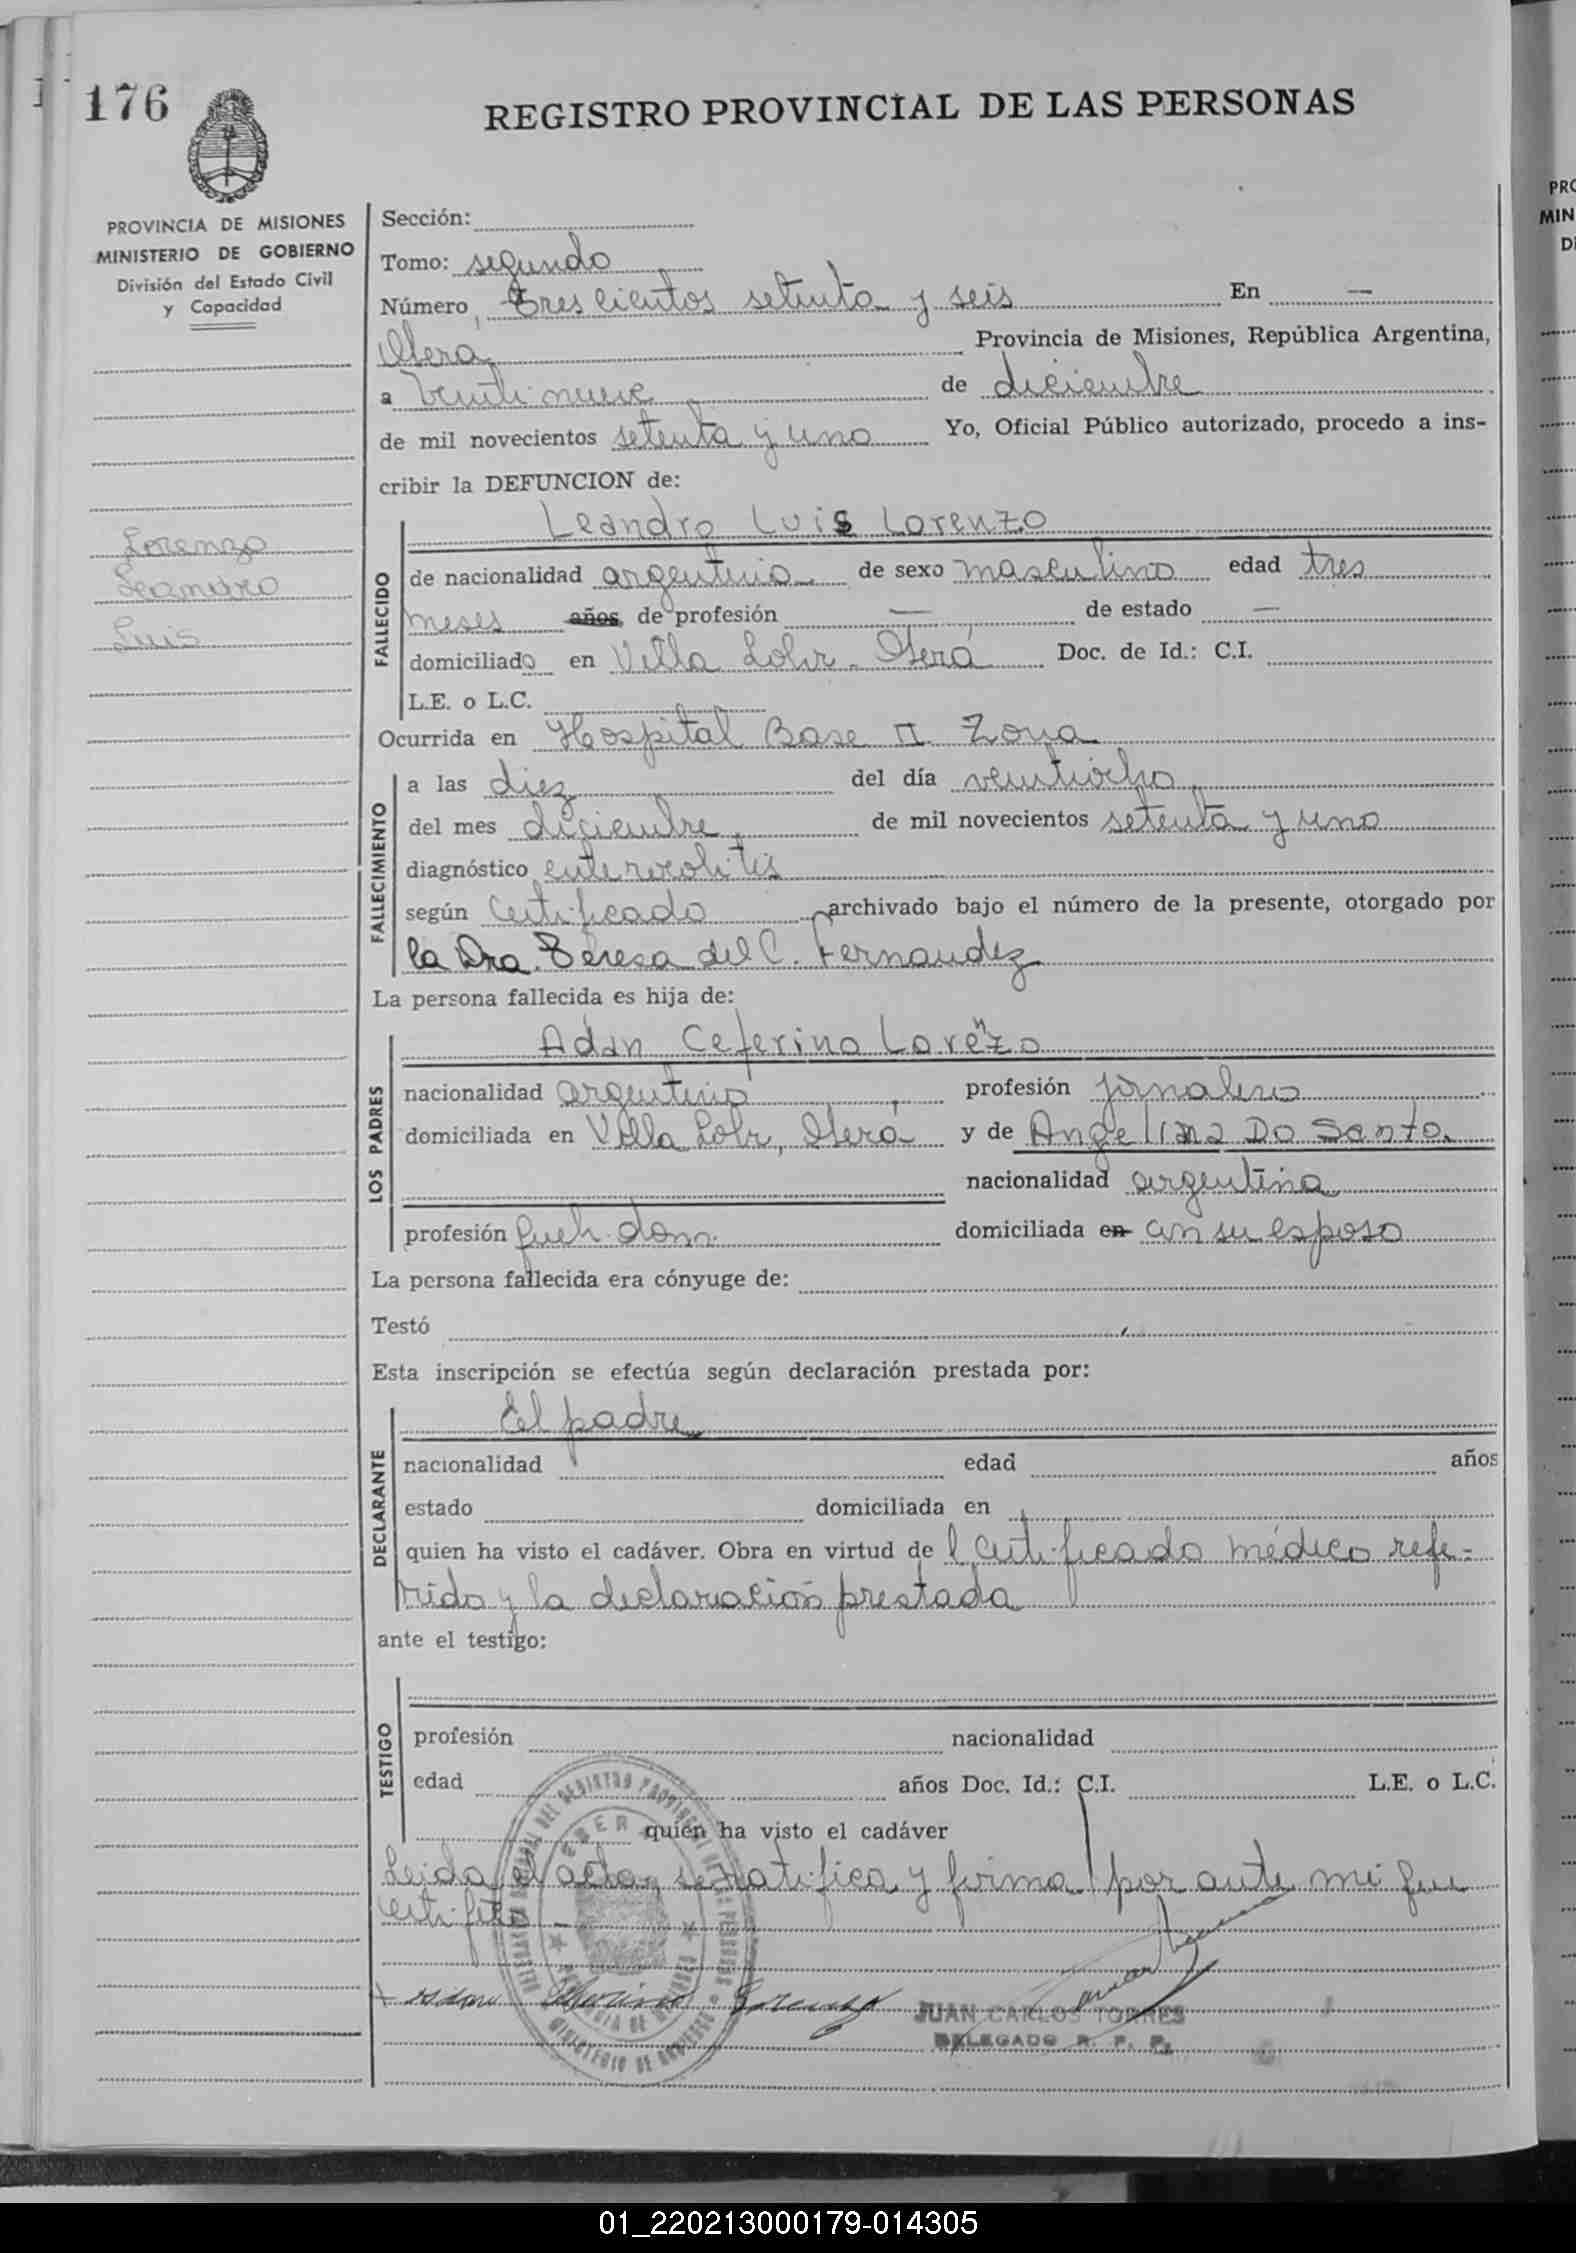 176
REGISTRO PROVINCIAL DE LAS PERSONAS
PROVINCIA DE MISIONES
MINISTERIO DE GOBIERNO
División del Estado Civil
y Capacidad
Lorenzo
Leandro
Luis
Sección:
Tomo: segundo
Número Trescientos setenta y seis En —
Oberá Provincia de Misiones, República Argentina,
a veinti nueve de diciembre
de mil novecientos setenta y uno Yo, Oficial Público autorizado, procedo a ins-
cribir la DEFUNCION de:
FALLECIDO
Leandro Luis Lorenzo
de nacionalidad argentina de sexo masculino edad tres
meses años de profesión — de estado —
domiciliado en Villa Lohr - Oberá Doc. de Id.: C.I.
L.E. o L.C.
Ocurrida en Hospital Base II Zona
FALLECIMIENTO
a las diez del día veintiocho
del mes diciembre de mil novecientos setenta y uno
diagnóstico enterocolitis
según Certificado archivado bajo el número de la presente, otorgado por
la Dra. Teresa del C. Fernandez
La persona fallecida es hija de:
LOS PADRES
Adan Ceferino Lorenzo
nacionalidad argentino profesión jornalero
domiciliada en Villa Lohr, Oberá y de Angelina Do Santo.
nacionalidad argentina
profesión queh. dom. domiciliada en con su esposo
La persona fallecida era cónyuge de:
Testó
Esta inscripción se efectúa según declaración prestada por:
DECLARANTE
El padre
nacionalidad edad años
estado domiciliada en
quien ha visto el cadáver. Obra en virtud de l certificado médico refe-
rido y la declaración prestada
ante el testigo:
TESTIGO
profesión nacionalidad
edad años Doc. Id.: C.I. L.E. o L.C.
quien ha visto el cadáver
Leida el acta, se ratifica y firma por ante mi que
certifico -
Ceferino Lorenzo
JUAN CARLOS TORRES
DELEGADO R. P. P.
01_220213000179-014305